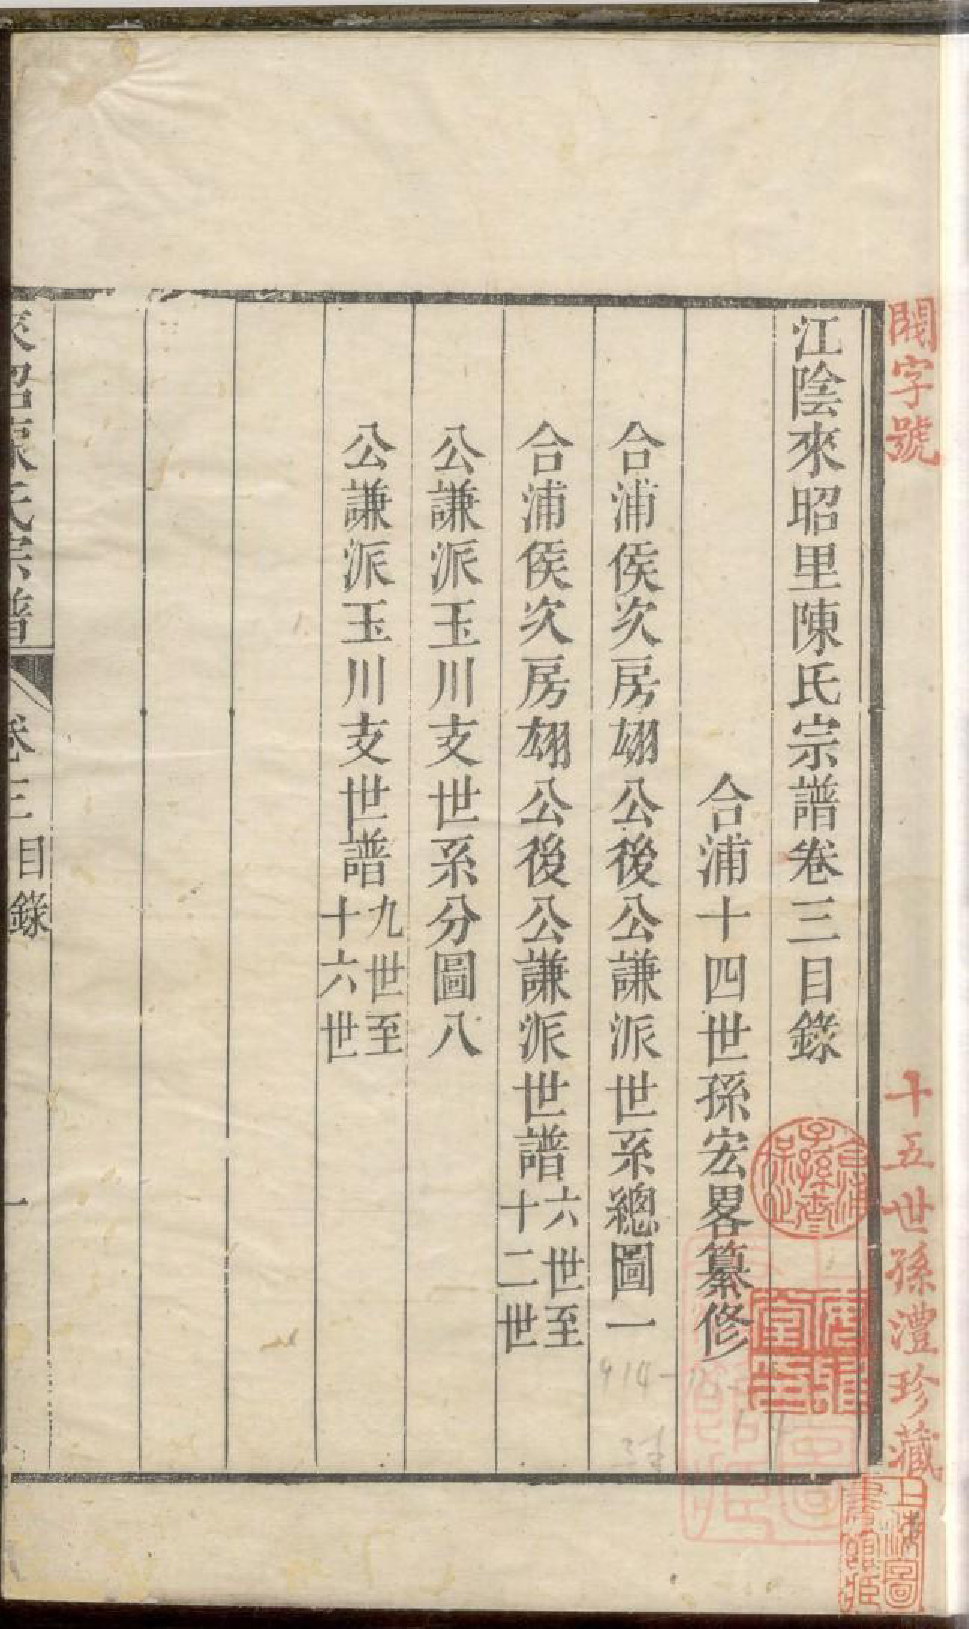 閣字號
十五世孫澧珍藏
江陰來昭里陳氏宗譜卷三目錄
合浦十四世孫宏畧纂修
合浦侯次房翊公後公謙派世系總圖一
合浦侯次房翊公後公謙派世譜六世至十二世
公謙派玉川支世系分圖八
公謙派玉川支世譜九世至十六世
來昭陳氏宗譜
卷三目錄
一
上海圖書館藏